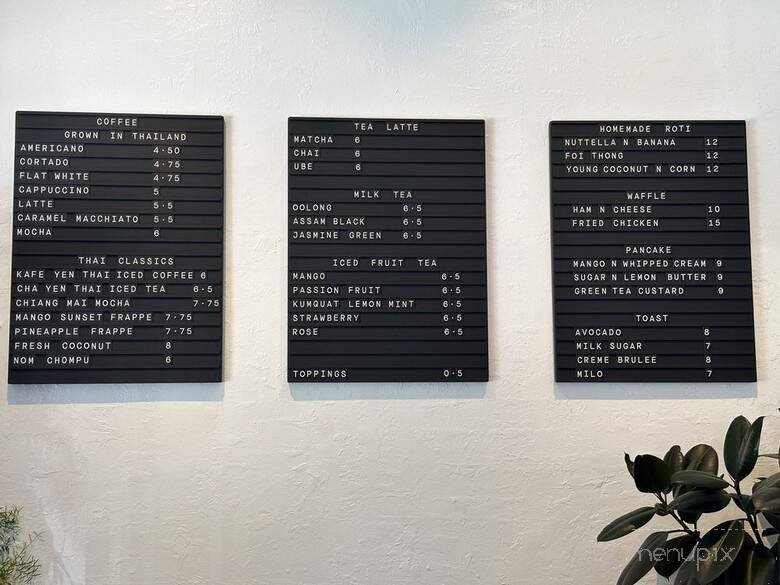 COFFEE
GROWN IN THAILAND
AMERICANO 4.50
CORTADO 4.75
FLAT WHITE 4.75
CAPPUCCINO 5
LATTE 5.5
CARAMEL MACCHIATO 5.5
MOCHA 6
THAI CLASSICS
KAFE YEN THAI ICED COFFEE 6
CHA YEN THAI ICED TEA 6.5
CHIANG MAI MOCHA 7.75
MANGO SUNSET FRAPPE 7.75
PINEAPPLE FRAPPE 7.75
FRESH COCONUT 8
NOM CHOMPU 6
TEA LATTE
MATCHA 6
CHAI 6
UBE 6
MILK TEA
OOLONG 6.5
ASSAM BLACK 6.5
JASMINE GREEN 6.5
ICED FRUIT TEA
MANGO 6.5
PASSION FRUIT 6.5
KUMQUAT LEMON MINT 6.5
STRAWBERRY 6.5
ROSE 6.5
TOPPINGS 0.5
HOMEMADE ROTI
NUTTELLA N BANANA 12
FOI THONG 12
YOUNG COCONUT N CORN 12
WAFFLE
HAM N CHEESE 10
FRIED CHICKEN 15
PANCAKE
MANGO N WHIPPED CREAM 9
SUGAR N LEMON BUTTER 9
GREEN TEA CUSTARD 9
TOAST
AVOCADO 8
MILK SUGAR 7
CREME BRULEE 8
MILO 7
menupix